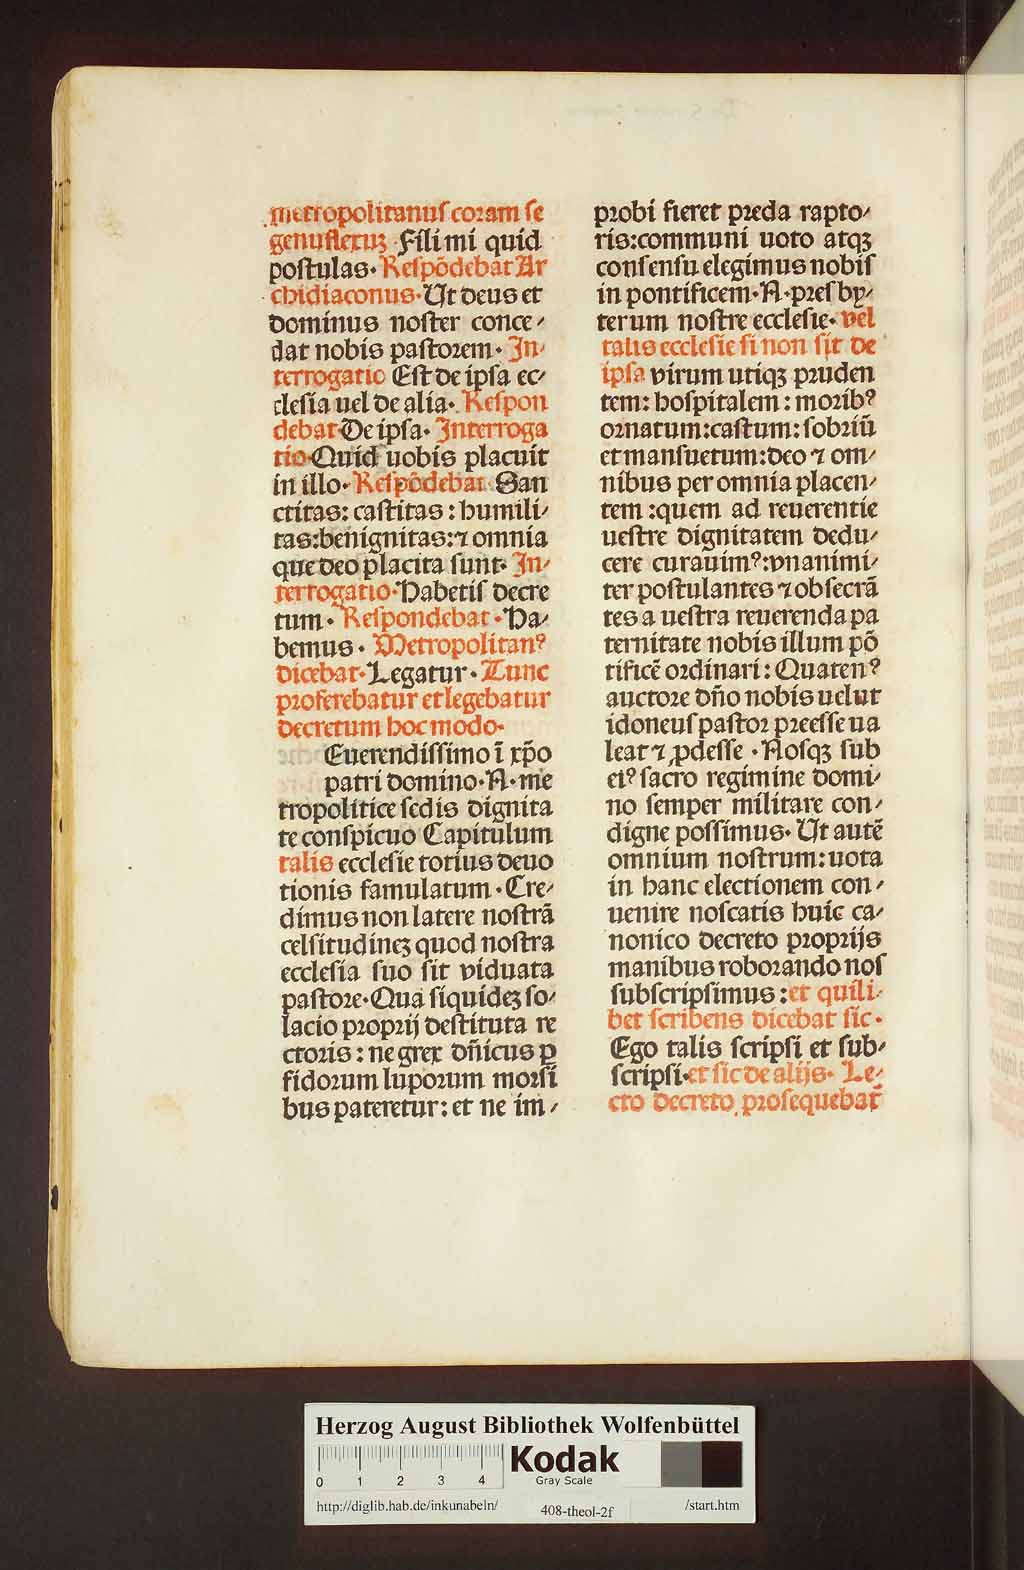 metropolitanuſ coram ſe
genuflexuꝫ· Fili mi quid
poſtulas· Reſpõdebat Ar
chidiaconus· Ut deus et
dominus noſter conce⸗
dat nobis paſtorem· In⸗
terrogatio Eſt de ipſa ec⸗
cleſia uel de alia· Reſpon
debat· De ipſa· Interroga
tio· Quid uobis placuit
in illo· Reſpõdebat· San
ctitas: caſtitas: humili⸗
tas: benignitas: ⁊ omnia
que deo placita ſunt· In⸗
terrogatio· Habetiſ decre
tum· Reſpondebat· Ha⸗
bemus· Metropolitanꝰ
dicebat· Legatur· Tunc
proferebatur et legebatur
decretum hoc modo·
Euerendiſſimo ĩ xp̃o
patri domino· N· me
tropolitice ſedis dignita
te conſpicuo Capitulum
talis eccleſie totius deuo
tionis famulatum· Cre⸗
dimus non latere noſtrã
celſitudineꝫ quod noſtra
eccleſia ſuo ſit viduata
paſtore· Qua ſiquideꝫ ſo⸗
lacio proprij deſtituta re
ctoris: ne grex dñicus ꝑ
fidorum luporum morſi
bus pateretur: et ne im⸗
probi fieret preda rapto⸗
ris: communi uoto atqꝫ
conſenſu elegimus nobiſ
in pontificem· N· preſby⸗
terum noſtre eccleſie· vel
talis eccleſie ſi non ſit de
ipſa virum utiqꝫ pruden
tem: hoſpitalem: moribꝰ
ornatum: caſtum: ſobriũ
et manſuetum: deo ⁊ om⸗
nibus per omnia placen⸗
tem: quem ad reuerentie
ueſtre dignitatem dedu⸗
cere curauimꝰ: vnanimi⸗
ter poſtulantes ⁊ obſecrã
tes a ueſtra reuerenda pa
ternitate nobis illum põ
tificẽ ordinari: Quatenꝰ
auctore dño nobis uelut
idoneuſ paſtor preeſſe ua
leat ⁊ ꝓdeſſe· Noſqꝫ ſub
eiꝰ ſacro regimine domi⸗
no ſemper militare con⸗
digne poſſimus· Ut autẽ
omnium noſtrum: uota
in hanc electionem con⸗
uenire noſcatis huic ca⸗
nonico decreto proprijs
manibus roborando noſ
ſubſcripſimus: et quili⸗
bet ſcribens dicebat ſic·
Ego talis ſcripſi et ſub⸗
ſcripſi· et ſic de alijs· Le⸗
cto decreto proſequebat̃
Herzog August Bibliothek Wolfenbüttel
0 1 2 3 4
Kodak
Gray Scale
http://diglib.hab.de/inkunabeln/ 408-theol-2f /start.htm